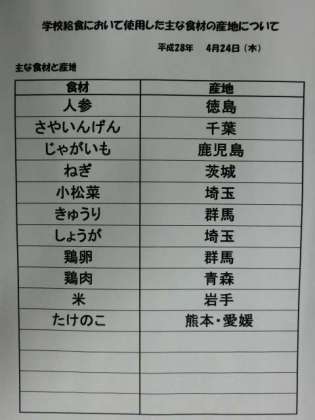 学校給食において使用した主な食材の産地について
平成28年 4月24日（水）
主な食材と産地
食材 産地
人参 徳島
さやいんげん 千葉
じゃがいも 鹿児島
ねぎ 茨城
小松菜 埼玉
きゅうり 群馬
しょうが 埼玉
鶏卵 群馬
鶏肉 青森
米 岩手
たけのこ 熊本・愛媛